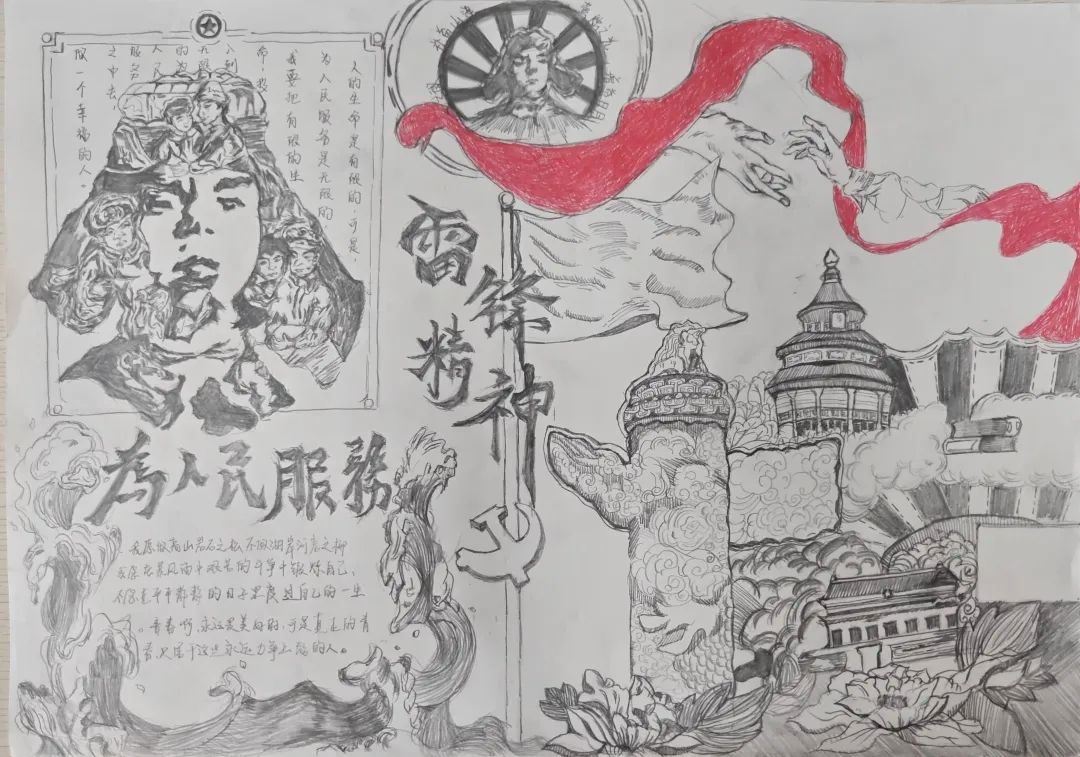 人的生命是有限的，可是
为人民服务是无限的
我要把有限的生
命，投
入到
无限
的为
人
服务
之中去
做一个幸福的人。
雷锋精神
为人民服務
我愿做高山岩石之松不做湖岸河旁之柳
我愿在暴风雨中艰苦的斗争中锻炼自己，
不愿在平平静静的日子里度过自己的一生
。青春啊，永远是美好的，可是真正的青
春，只属于这些永远力争上游的人。